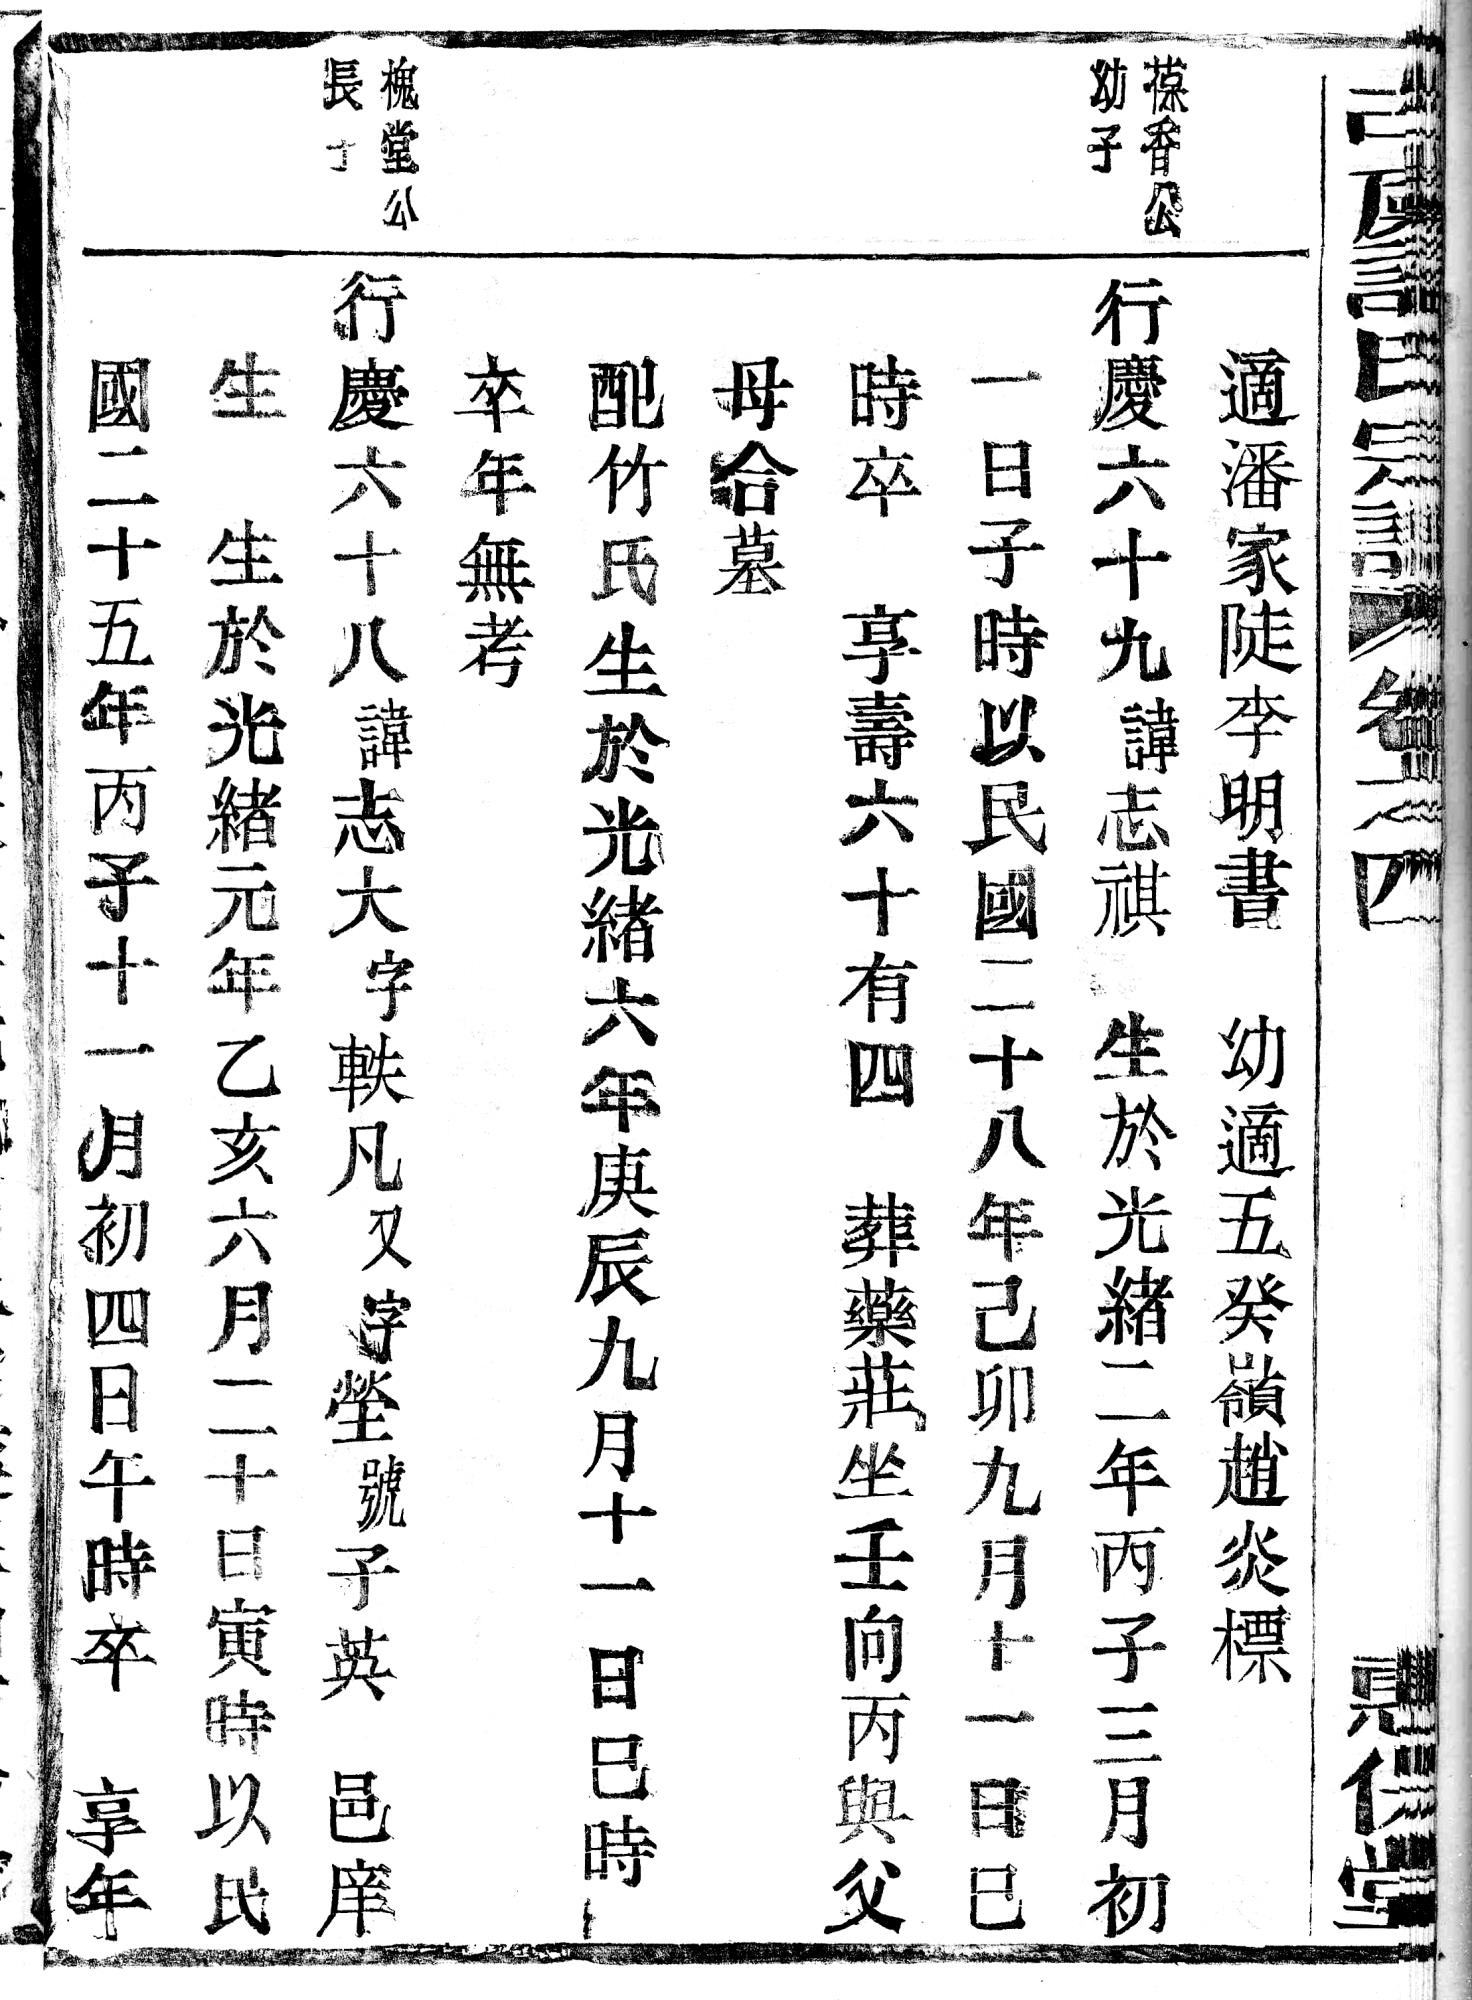 宗譜 卷之四
堂
適潘家陡李明書 幼適五癸嶺趙炎標
葆香公
幼子
行慶六十九諱志祺 生於光緒二年丙子三月初
一日子時以民國二十八年己卯九月十一日巳
時卒 享壽六十有四 葬藥莊坐壬向丙與父
母合墓
配竹氏生於光緒六年庚辰九月十一日巳時
卒年無考
槐堂公
長子
行慶六十八諱志大字軼凡又字瑩號子英 邑庠
生 生於光緒元年乙亥六月二十日寅時以民
國二十五年丙子十一月初四日午時卒 享年